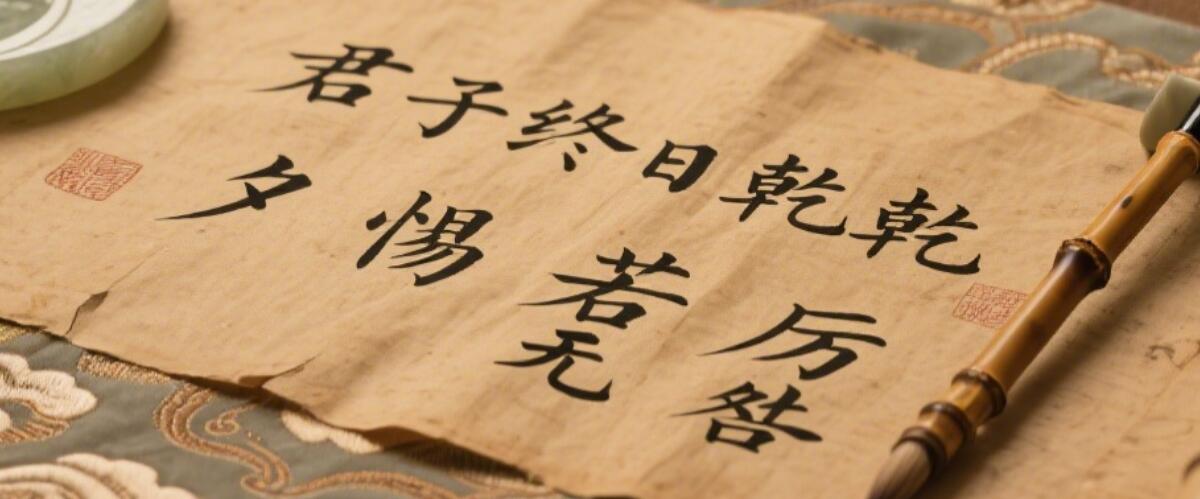 君子终日乾乾
夕惕若厉
无咎